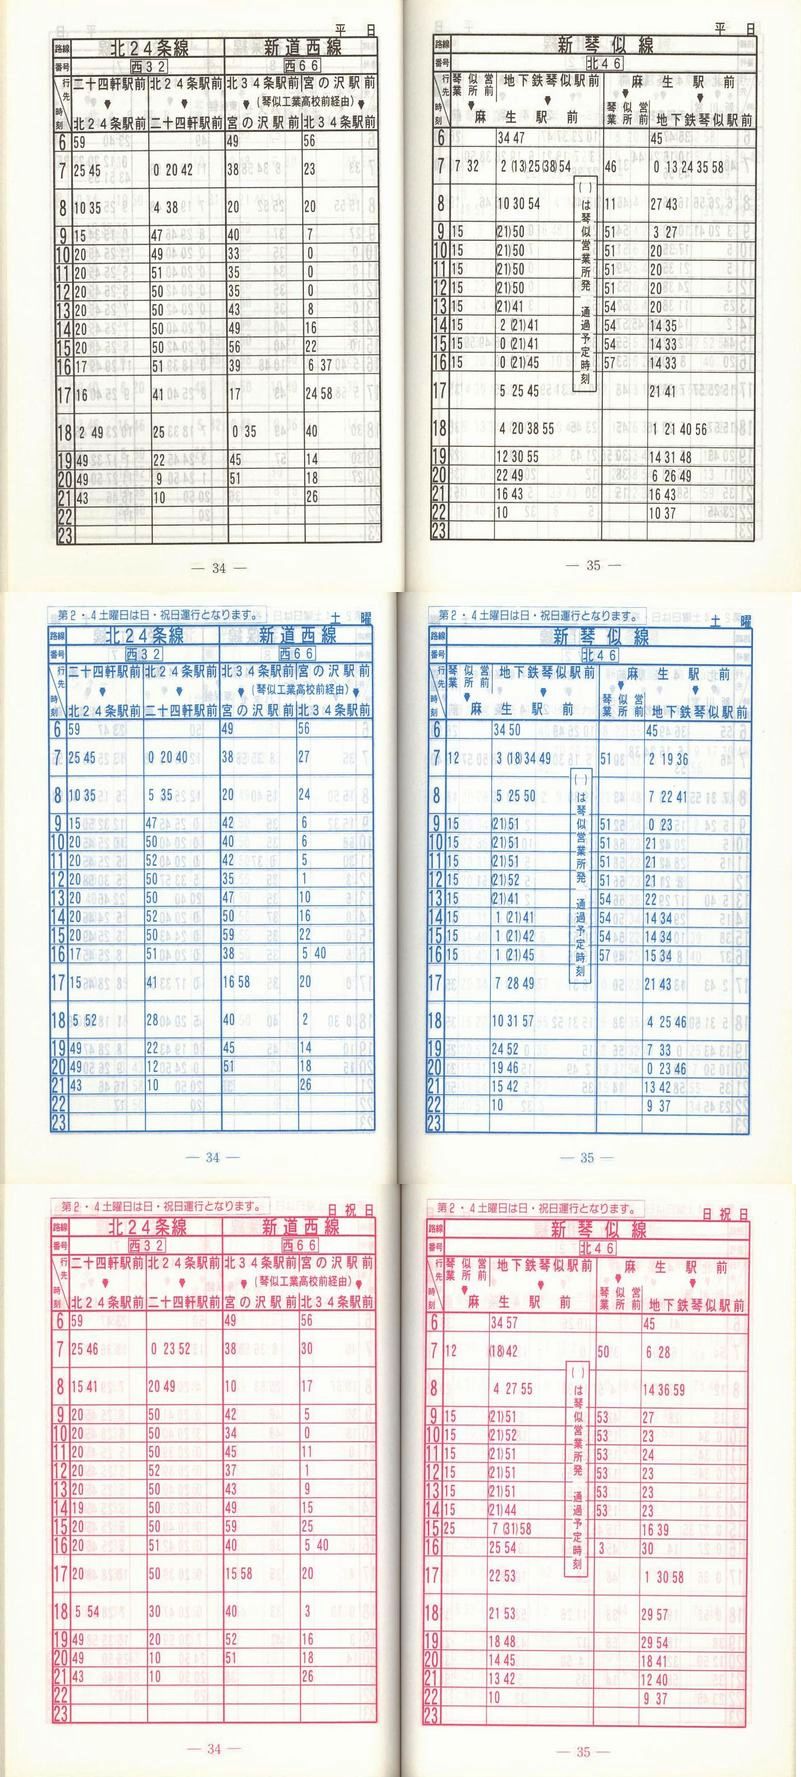 平 日
路線 北24条線 新道西線
番号 西32 西66
行先 二十四軒駅前 北24条駅前 北34条駅前 宮の沢駅前
(琴似工業高校前経由)
時刻 北24条駅前 二十四軒駅前 宮の沢駅前 北34条駅前
6 59 49 56
7 25 45 0 20 42 38 23
8 10 35 4 38 20 20
9 15 47 40 7
10 20 49 33 0
11 20 51 35 0
12 20 50 35 0
13 20 50 43 8
14 20 50 49 16
15 20 50 56 22
16 17 51 39 6 37
17 16 41 17 24 58
18 2 49 25 0 35 40
19 49 22 45 14
20 49 9 51 18
21 43 10 26
22
23
― 34 ―
平 日
路線 新琴似線
番号 北46
行先 琴似営業所前 地下鉄琴似駅前 麻生駅前
時刻 麻生駅前 琴似営業所前 地下鉄琴似駅前
6 34 47 45
7 7 32 2 (13) 25 (38) 54 46 0 13 24 35 58
8 10 30 54 11 27 43
9 15 (21) 50 51 3 27
10 15 (21) 50 51 20
11 15 (21) 50 51 20
12 15 (21) 50 51 20
13 15 (21) 41 54 20
14 15 2 (21) 41 54 14 35
15 15 0 (21) 41 54 14 33
16 15 0 (21) 45 57 14 33
17 5 25 45 21 41
18 4 20 38 55 1 21 40 56
19 12 30 55 14 31 48
20 22 49 6 26 49
21 16 43 16 43
22 10 10 37
23
( )は琴似営業所発 通過予定時刻
― 35 ―
第2・4土曜日は日・祝日運行となります。
路線 北24条線 新道西線
番号 西32 西66
行先 二十四軒駅前 北24条駅前 北34条駅前 宮の沢駅前
(琴似工業高校前経由)
時刻 北24条駅前 二十四軒駅前 宮の沢駅前 北34条駅前
6 59 49 56
7 25 45 0 20 40 38 27
8 10 35 5 35 20 24
9 15 47 42 6
10 20 50 40 6
11 20 52 42 5
12 20 50 35 1
13 20 50 47 10
14 20 52 50 16
15 20 50 59 22
16 17 51 38 5 40
17 15 41 16 58 20
18 5 52 28 40 2
19 49 22 45 14
20 49 12 51 18
21 43 10 26
22
23
― 34 ―
第2・4土曜日は日・祝日運行となります。 土 曜
路線 新琴似線
番号 北46
行先 琴似営業所前 地下鉄琴似駅前 麻生駅前
時刻 麻生駅前 琴似営業所前 地下鉄琴似駅前
6 34 50 45
7 12 3 (18) 34 49 51 2 19 36
8 5 25 50 7 22 41
9 15 (21) 51 51 0 23
10 15 (21) 51 51 21
11 15 (21) 51 51 21
12 15 (21) 52 51 21
13 15 (21) 41 54 22
14 15 1 (21) 41 54 14 34
15 15 1 (21) 42 54 14 34
16 15 1 (21) 45 57 15 34
17 7 28 49 21 43
18 10 31 57 4 25 46
19 24 52 7 33
20 19 46 0 23 46
21 15 42 13 42
22 10 9 37
23
( )は琴似営業所発 通過予定時刻
― 35 ―
第2・4土曜日は日・祝日運行となります。 日 祝 日
路線 北24条線 新道西線
番号 西32 西66
行先 二十四軒駅前 北24条駅前 北34条駅前 宮の沢駅前
(琴似工業高校前経由)
時刻 北24条駅前 二十四軒駅前 宮の沢駅前 北34条駅前
6 59 49 56
7 25 46 0 23 52 38 30
8 15 41 20 49 10 17
9 20 50 42 5
10 20 50 34 0
11 20 50 45 11
12 20 52 37 1
13 20 50 43 9
14 19 50 49 15
15 20 50 59 25
16 20 51 40 5 40
17 20 50 15 58 20
18 5 54 30 40 3
19 49 20 52 16
20 49 10 51 18
21 43 10 26
22
23
― 34 ―
第2・4土曜日は日・祝日運行となります。 日 祝 日
路線 新琴似線
番号 北46
行先 琴似営業所前 地下鉄琴似駅前 麻生駅前
時刻 麻生駅前 琴似営業所前 地下鉄琴似駅前
6 34 57 45
7 12 (18) 42 50 6 28
8 4 27 55 14 36 59
9 15 (21) 51 53 27
10 15 (21) 52 53 23
11 15 (21) 51 53 24
12 15 (21) 51 53 23
13 15 (21) 51 53 23
14 15 (21) 44 53 23
15 25 7 (31) 58 16 39
16 25 54 3 30
17 22 53 1 30 58
18 21 53 29 57
19 18 48 29 54
20 14 45 18 41
21 13 42 12 40
22 10 9 37
23
( )は琴似営業所発 通過予定時刻
― 35 ―